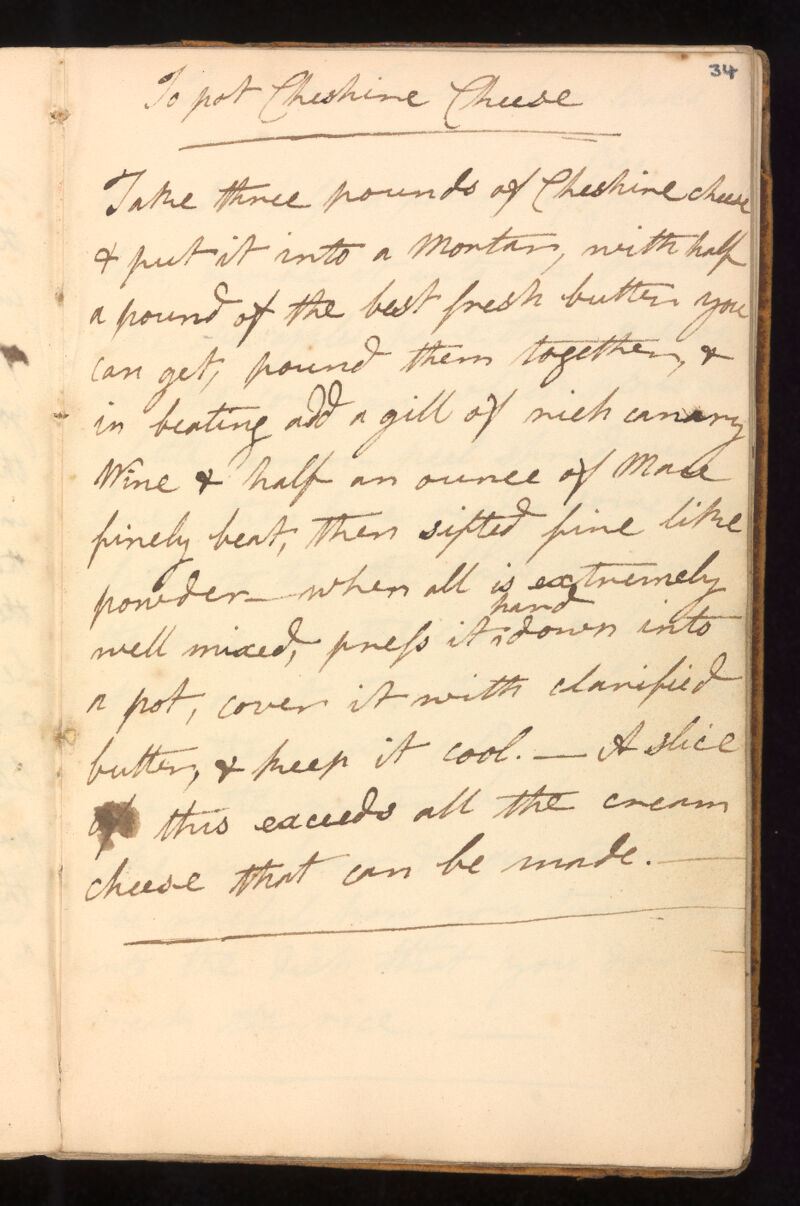 34
To pot Cheshire Cheese
Take three pounds of Cheshire cheese
& put it into a Mortar, with half
a pound of the best fresh butter you
can get, pound them together, &
in beating add a gill of rich canary
Wine & half an ounce of Mace
finely beat, then sifted fine like
powder – when all is extremely
hard
well mixed, press it down into
a pot, cover it with clarified
butter, & keep it cool. — A slice
of this exceeds all the cream
cheese that can be made. —